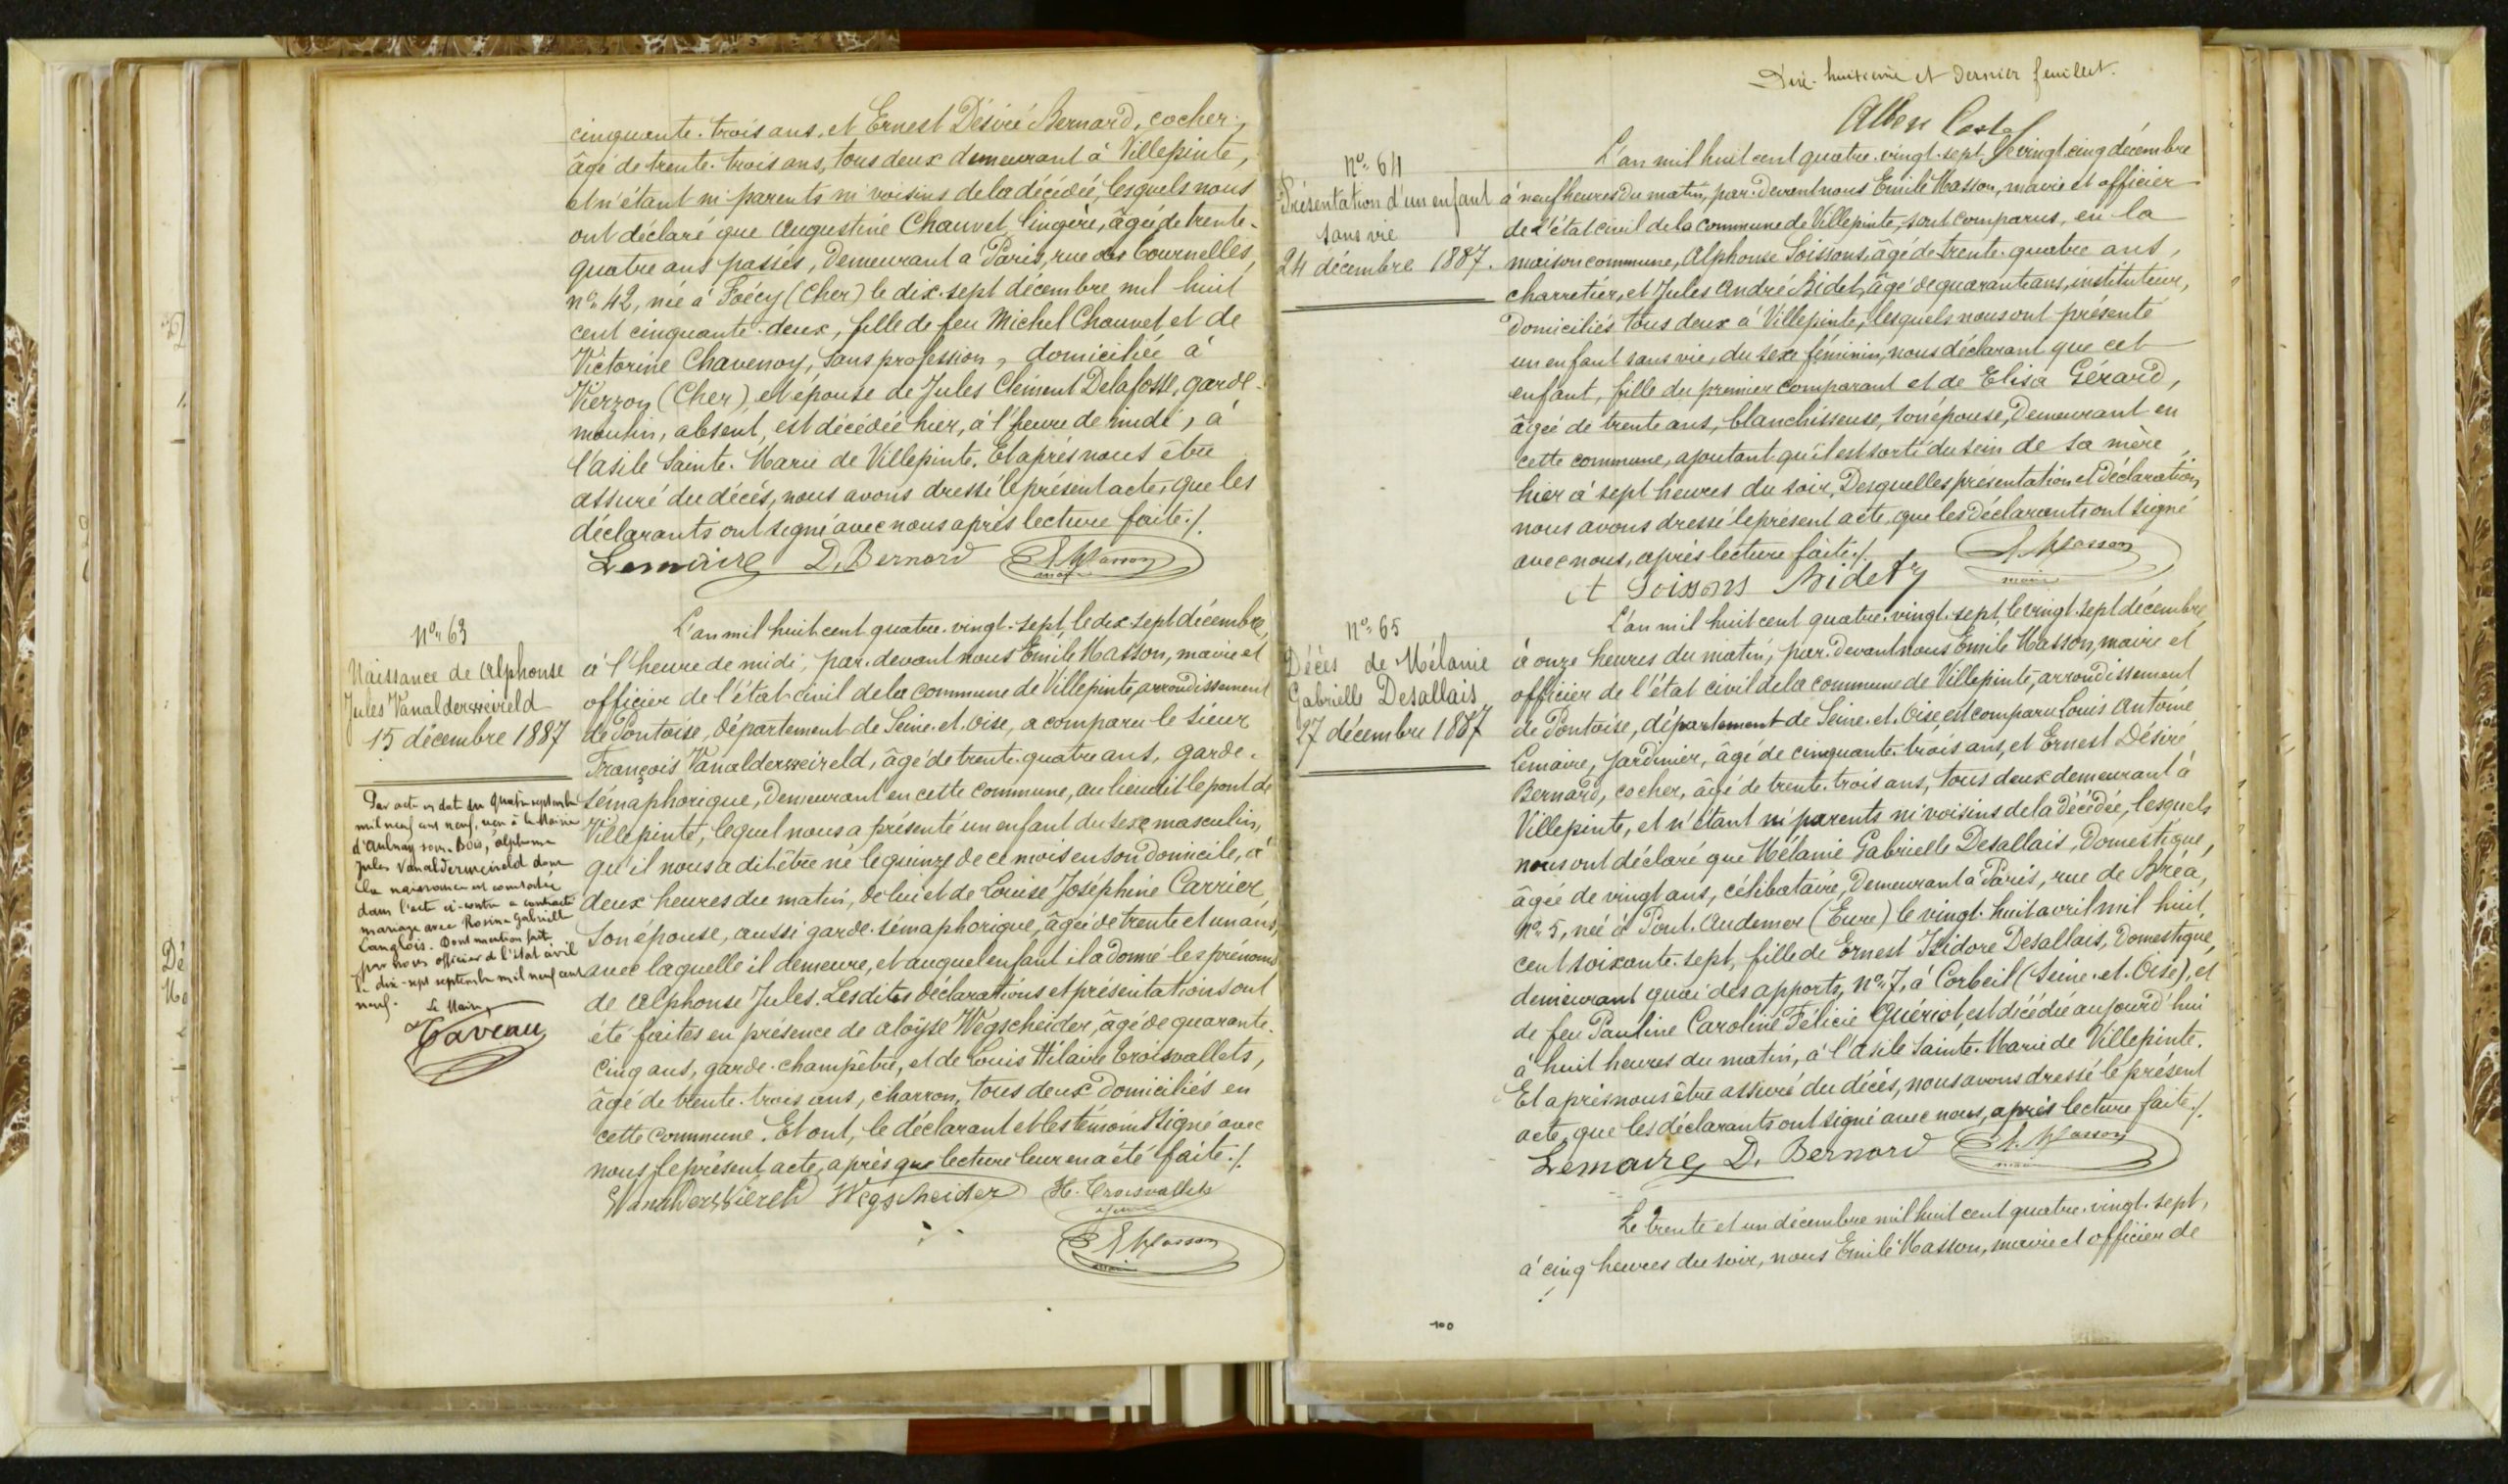 cinquante-trois ans, et Ernest Désiré Bernard, cocher,
âgé de trente-trois ans, tous deux demeurant à Villepinte,
et n'étant ni parents ni voisins de la décédée, lesquels nous
ont déclaré que Augustine Chauvet, lingère, âgée de trente-
quatre ans passés, demeurant à Paris, rue des Tournelles,
n° 42, née à Foëcy (Cher) le dix-sept décembre mil huit
cent cinquante-deux, fille de feu Michel Chauvet et de
Victorine Chavenoy, sans profession, domiciliée à
Vierzon (Cher) et épouse de Jules Clément Delafosse, garde-
moulin, absent, est décédée hier, à l'heure de midi, à
l'asile Sainte-Marie de Villepinte. Et après nous être
assuré du décès, nous avons dressé le présent acte, que les
déclarants ont signé avec nous après lecture faite./.
Lemaire D. Bernard E. Masson
maire
N° 63
Naissance de Alphonse
Jules Vanalderweireld
15 décembre 1887
L'an mil huit cent quatre-vingt-sept, le dix-sept décembre,
à l'heure de midi, par-devant nous Emile Masson, maire et
officier de l'état-civil de la commune de Villepinte, arrondissement
de Pontoise, département de Seine-et-Oise, a comparu le sieur
François Vanalderweireld, âgé de trente-quatre ans, garde-
sémaphorique, demeurant en cette commune, au lieudit le pont de
Villepinte, lequel nous a présenté un enfant du sexe masculin,
qu'il nous a dit être né le quinze de ce mois en son domicile, à
deux heures du matin, de lui et de Louise Joséphine Carrier,
son épouse, aussi garde-sémaphorique, âgée de trente et un ans,
avec laquelle il demeure, et auquel enfant il a donné les prénoms
de Alphonse Jules. Lesdites déclarations et présentation ont
été faites en présence de Aloÿse Wegscheider, âgé de quarante-
cinq ans, garde-champêtre, et de Louis Hilaire Troisvallets,
âgé de trente-trois ans, charron, tous deux domiciliés en
cette commune. Et ont, le déclarant et les témoins signé avec
nous le présent acte, après que lecture leur en a été faite./.
Wegscheider H. Troisvallets
E. Masson
maire
Par acte en date du quatre septembre
mil neuf cent neuf, reçu à la Mairie
d'Aulnay-sous-Bois, Alphonse
Jules Vanalderweireld dont
la naissance est constatée
dans l'acte ci-contre a contracté
mariage avec Rosine Gabrielle
Langlois. Dont mention faite
par nous officier de l'état civil
le dix-sept septembre mil neuf cent
neuf.
Le Maire
Taveau
Dix-huitième et dernier feuillet.
N° 64
Présentation d'un enfant
sans vie
24 décembre 1887.
L'an mil huit cent quatre-vingt-sept, le vingt-cinq décembre
à neuf heures du matin, par-devant nous Emile Masson, maire et officier
de l'état civil de la commune de Villepinte, sont comparus, en la
maison commune, Alphonse Soissons, âgé de trente-quatre ans,
charretier, et Jules André Bidet, âgé de quarante ans, instituteur,
domiciliés tous deux à Villepinte, lesquels nous ont présenté
un enfant sans vie, du sexe féminin, nous déclarant que cet
enfant, fille du premier comparant et de Elisa Gérard,
âgée de trente ans, blanchisseuse, son épouse, demeurant en
cette commune, ajoutant qu'il est sorti du sein de sa mère
hier à sept heures du soir. Desquelles présentation et déclaration
nous avons dressé le présent acte, que les déclarants ont signé
avec nous, après lecture faite./.
A Soissons Bidet E. Masson
maire
N° 65
Décès de Mélanie
Gabrielle Desallais
27 décembre 1887
L'an mil huit cent quatre-vingt-sept, le vingt-sept décembre,
à onze heures du matin, par-devant nous Emile Masson, maire et
officier de l'état civil de la commune de Villepinte, arrondissement
de Pontoise, département de Seine-et-Oise, est comparu Louis Antoine
Lemaire, jardinier, âgé de cinquante-trois ans, et Ernest Désiré
Bernard, cocher, âgé de trente-trois ans, tous deux demeurant à
Villepinte, et n'étant ni parents ni voisins de la décédée, lesquels
nous ont déclaré que Mélanie Gabrielle Desallais, domestique,
âgée de vingt ans, célibataire, demeurant à Paris, rue de Bréa,
n° 5, née à Pont-Audemer (Eure) le vingt-huit avril mil huit
cent soixante-sept, fille de Ernest Isidore Desallais, domestique,
demeurant quai des apports, n° 7, à Corbeil (Seine-et-Oise), et
de feu Pauline Caroline Félicie Quériot, est décédée aujourd'hui
à huit heures du matin, à l'asile Sainte-Marie de Villepinte.
Et après nous être assuré du décès, nous avons dressé le présent
acte, que les déclarants ont signé avec nous, après lecture faite./.
Lemaire D. Bernard E. Masson
maire
Le trente et un décembre mil huit cent quatre-vingt-sept,
à cinq heures du soir, nous Emile Masson, maire et officier de